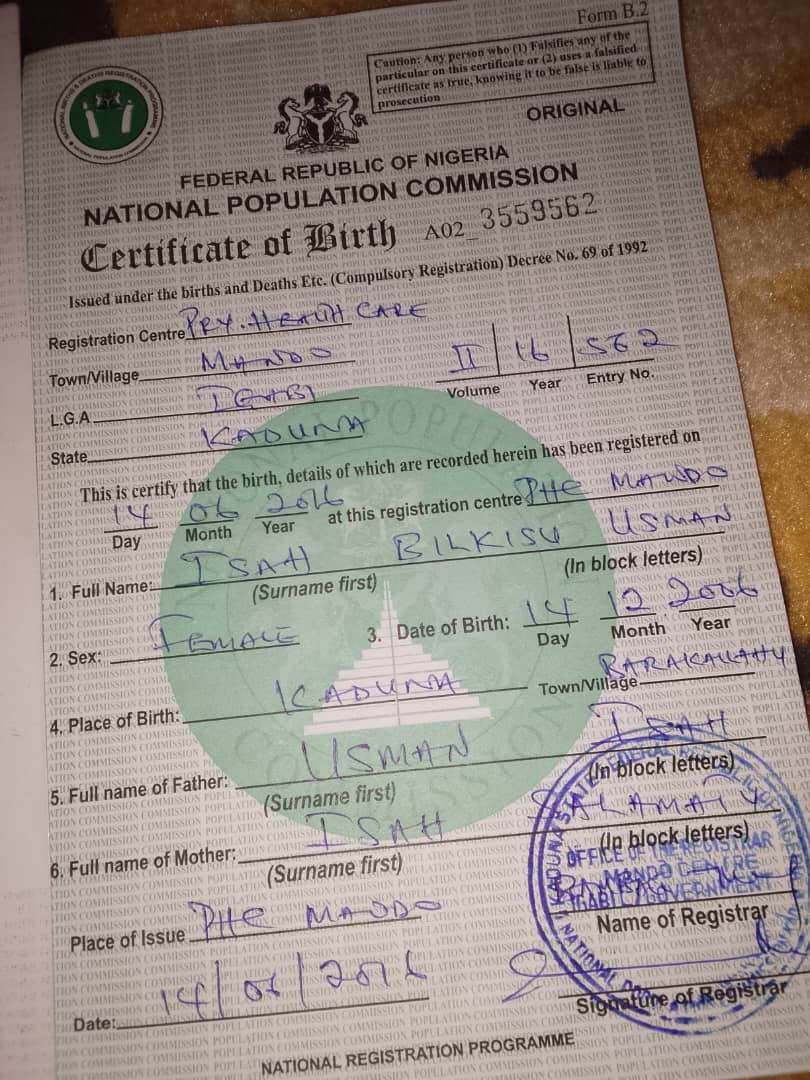 Form B.2
Caution: Any person who (1) Falsifies any of the
particular on this certificate or (2) uses a falsified
certificate as true, knowing it to be false is liable to
prosecution
ORIGINAL
FEDERAL REPUBLIC OF NIGERIA
NATIONAL POPULATION COMMISSION
Certificate of Birth A02_3559562
Issued under the births and Deaths Etc. (Compulsory Registration) Decree No. 69 of 1992
Registration Centre PRY. HEALTH CARE
Town/Village MANDO
II 16 562
Volume Year Entry No.
L.G.A IGABI
State KADUNA
This is certify that the birth, details of which are recorded herein has been registered on
14 06 2016 at this registration centre PHC MANDO
Day Month Year
1. Full Name: ISAH BILKISU USMAN
(Surname first) (In block letters)
2. Sex: FEMALE 3. Date of Birth: 14 12 2006
Day Month Year
4. Place of Birth: KADUNA Town/Village BARAKALLAHU
5. Full name of Father: USMAN ISAH
(Surname first) (In block letters)
6. Full name of Mother: ISAH SALAMATU
(Surname first) (In block letters)
Place of Issue PHC MANDO
Name of Registrar
Date: 14/06/2016
Signature of Registrar
NATIONAL REGISTRATION PROGRAMME